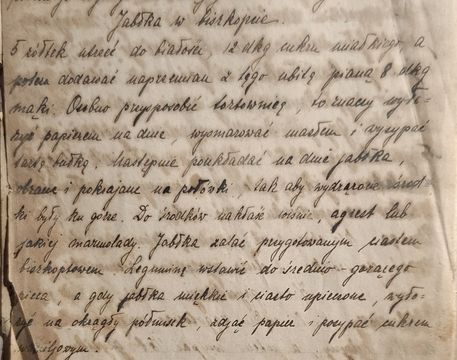 Jabłka w biszkopcie.
5 żółtek utrzeć do białości, 12 dkg cukru miałkiego, a
potem dodawać naprzemian z tego ubitą pianą 8 dkg
mąki. Osobno przysposobić tortownicę, to znaczy wyło-
żyć papierem na dnie, wysmarować masłem i wysypać
tartą bułką. Następnie poukładać na dnie jabłka,
obrane i pokrajane na połówki, tak aby wydrążone środ-
ki były ku górze. Do środków nakłaść wiśnie, agrest lub
jakiej marmolady. Jabłka zalać przygotowanym ciastem
biszkoptowem. Leguminę wstawić do średnio-gorącego
pieca, a gdy jabłka miękkie i ciasto upieczone, wyło-
żyć na okrągły półmisek, zdjąć papier i posypać cukrem